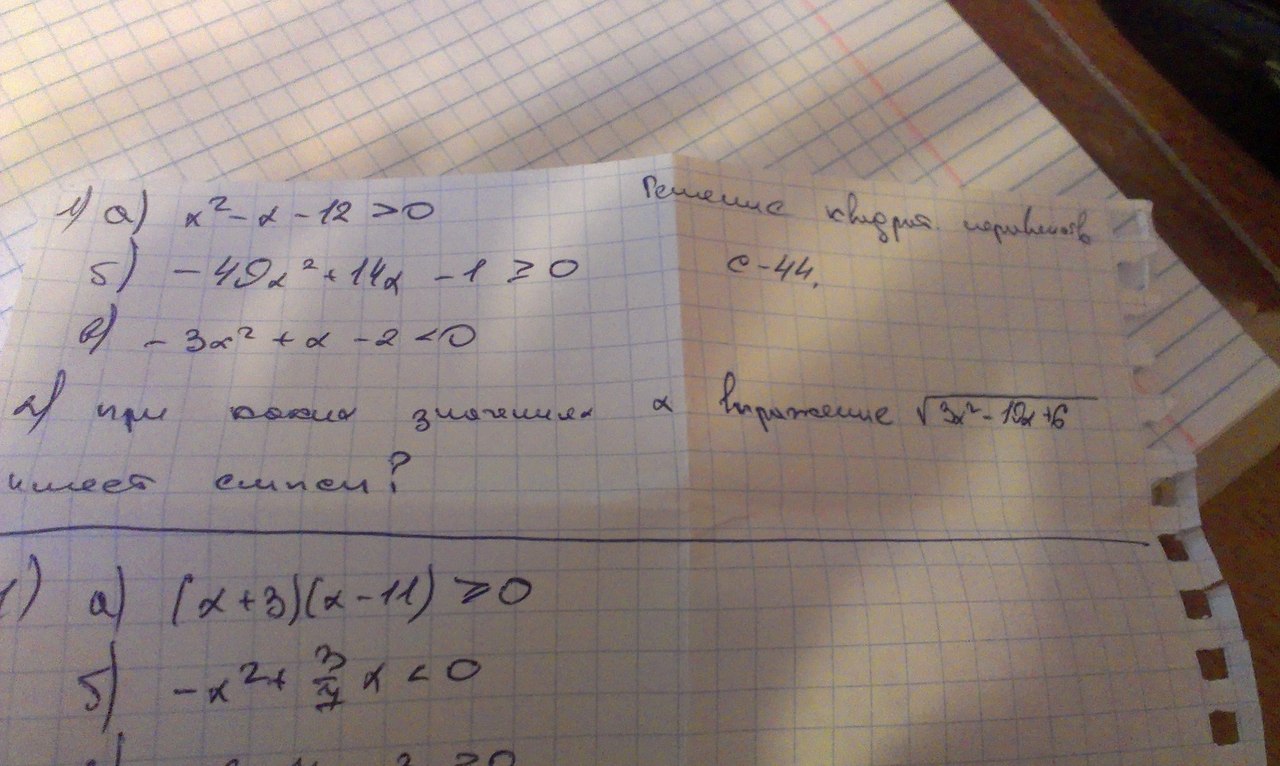 1) а) x² - x - 12 > 0
Решение квадрат. неравенств
б) - 49x² + 14x - 1 ≥ 0
С-44.
в) - 3x² + x - 2 < 0
2) при каких значениях x выражение √3x² - 19x + 6
имеет смысл?
1) а) (x + 3)(x - 11) ≥ 0
б) - x² + 3/7 x < 0